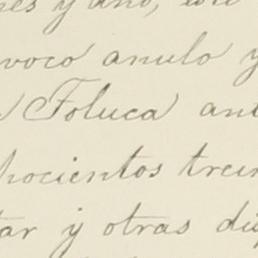 y año,
voco anulo y
Toluca ant
hocientos trein
tar y otras dis